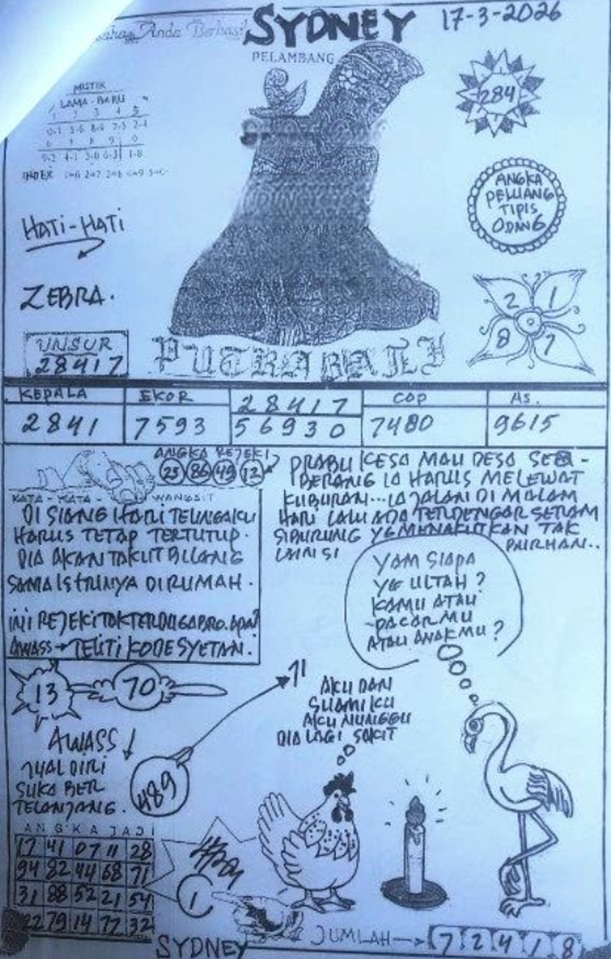 Anda Berhasil
SYDNEY
17-3-2026
PELAMBANG
MISTIK
LAMA - BARU
1 2 3 4 5
6 7 8 9 0
INDEX
284
ANGKA
PELUANG
TIPIS
HATI-HATI
ZEBRA.
2 1
8 7
UNSUR
28417
PUTRA BALI
KEPALA EKOR 28417 COP AS.
2841 7593 56930 7480 9615
ANGKA REJEKI
25 86 49 12
KATA - KATA - WANGSIT
DI SIANG HARI TELINGAKU
HARUS TETAP TERTUTUP.
DIA AKAN TAKUT BILANG
SAMA ISTRINYA DIRUMAH.
INI REJEKI
AWASS → TELITI KODE SYETAN.
PRABU KESA MAU DESA SE
BERANG IA HARUS MELEWAT
KUBURAN... IA JALAN DI MALAM
HARI LALU ADA TERDENGAR SERAM
SIBURUNG YG MENAKUTKAN TAK
LAIN SI
YAM SIAPA
YG ULTAH ?
KAMU ATAU
PACARMU
ATAU ANAKMU ?
13 70
11
AKU DAN
SUAMIKU
AKU NUNGGU
DIA LAGI SAKIT
AWASS
JUAL DIRI
SUKA BER
TELANJANG.
489
ANGKA JADI
17 41 07 11 28
94 82 44 68 71
31 88 52 21 54
22 79 14 77 32
1
SYDNEY
JUMLAH → 7 2 4 1 8